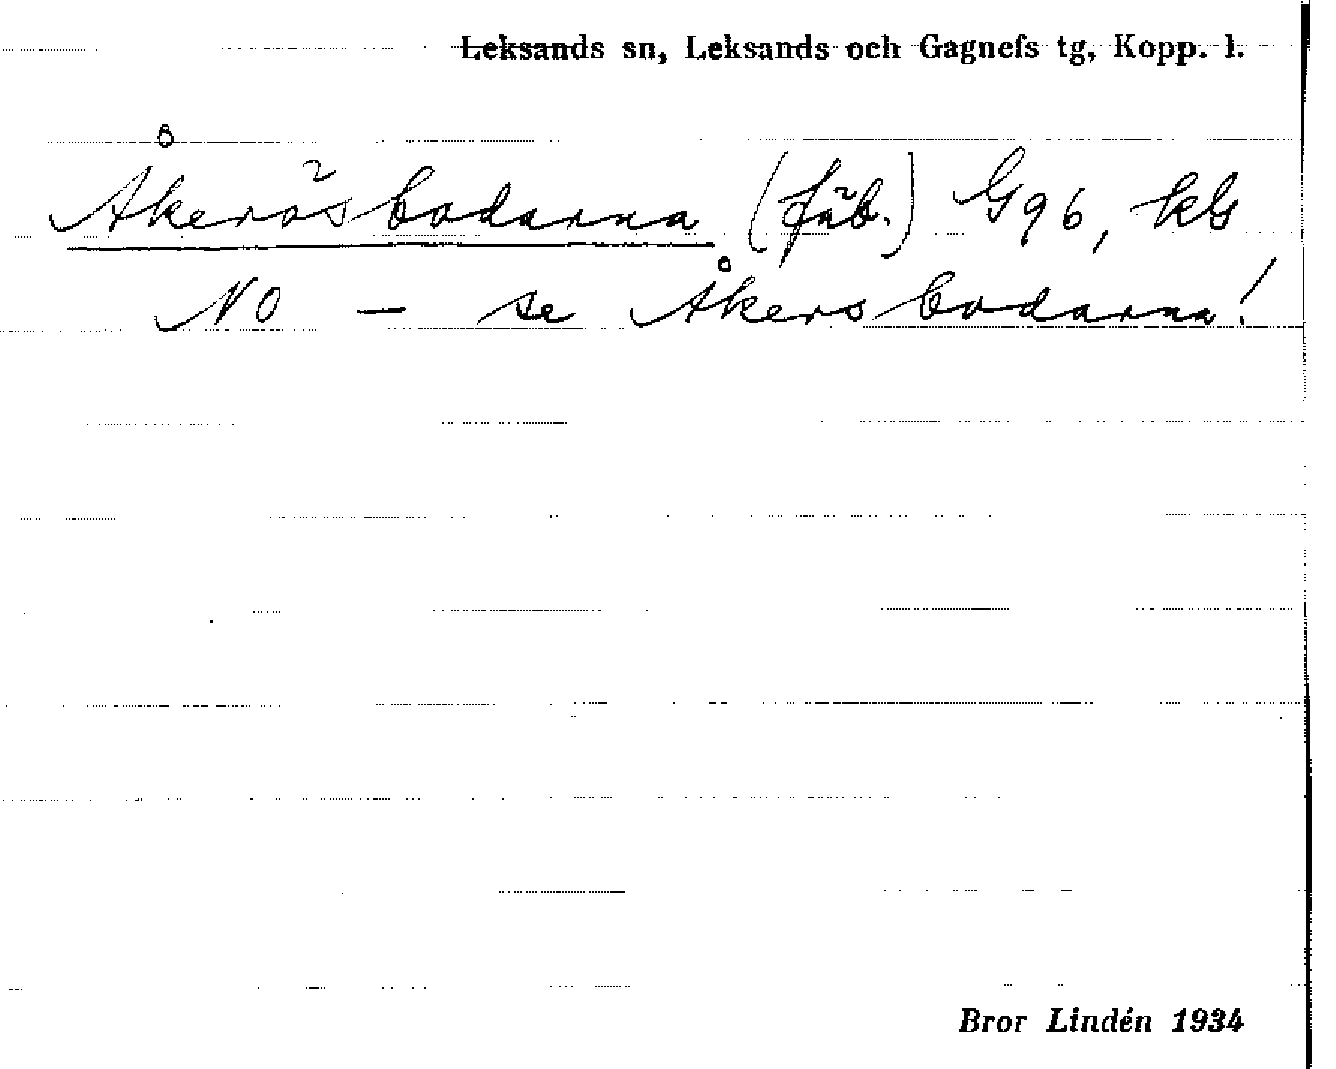 Leksands sn, Leksands och Gagnefs tg, Kopp. l.
Åkerösbodarna (fäb.) G96, kG
NO – se Åkersbodarna!
Bror Lindén 1934